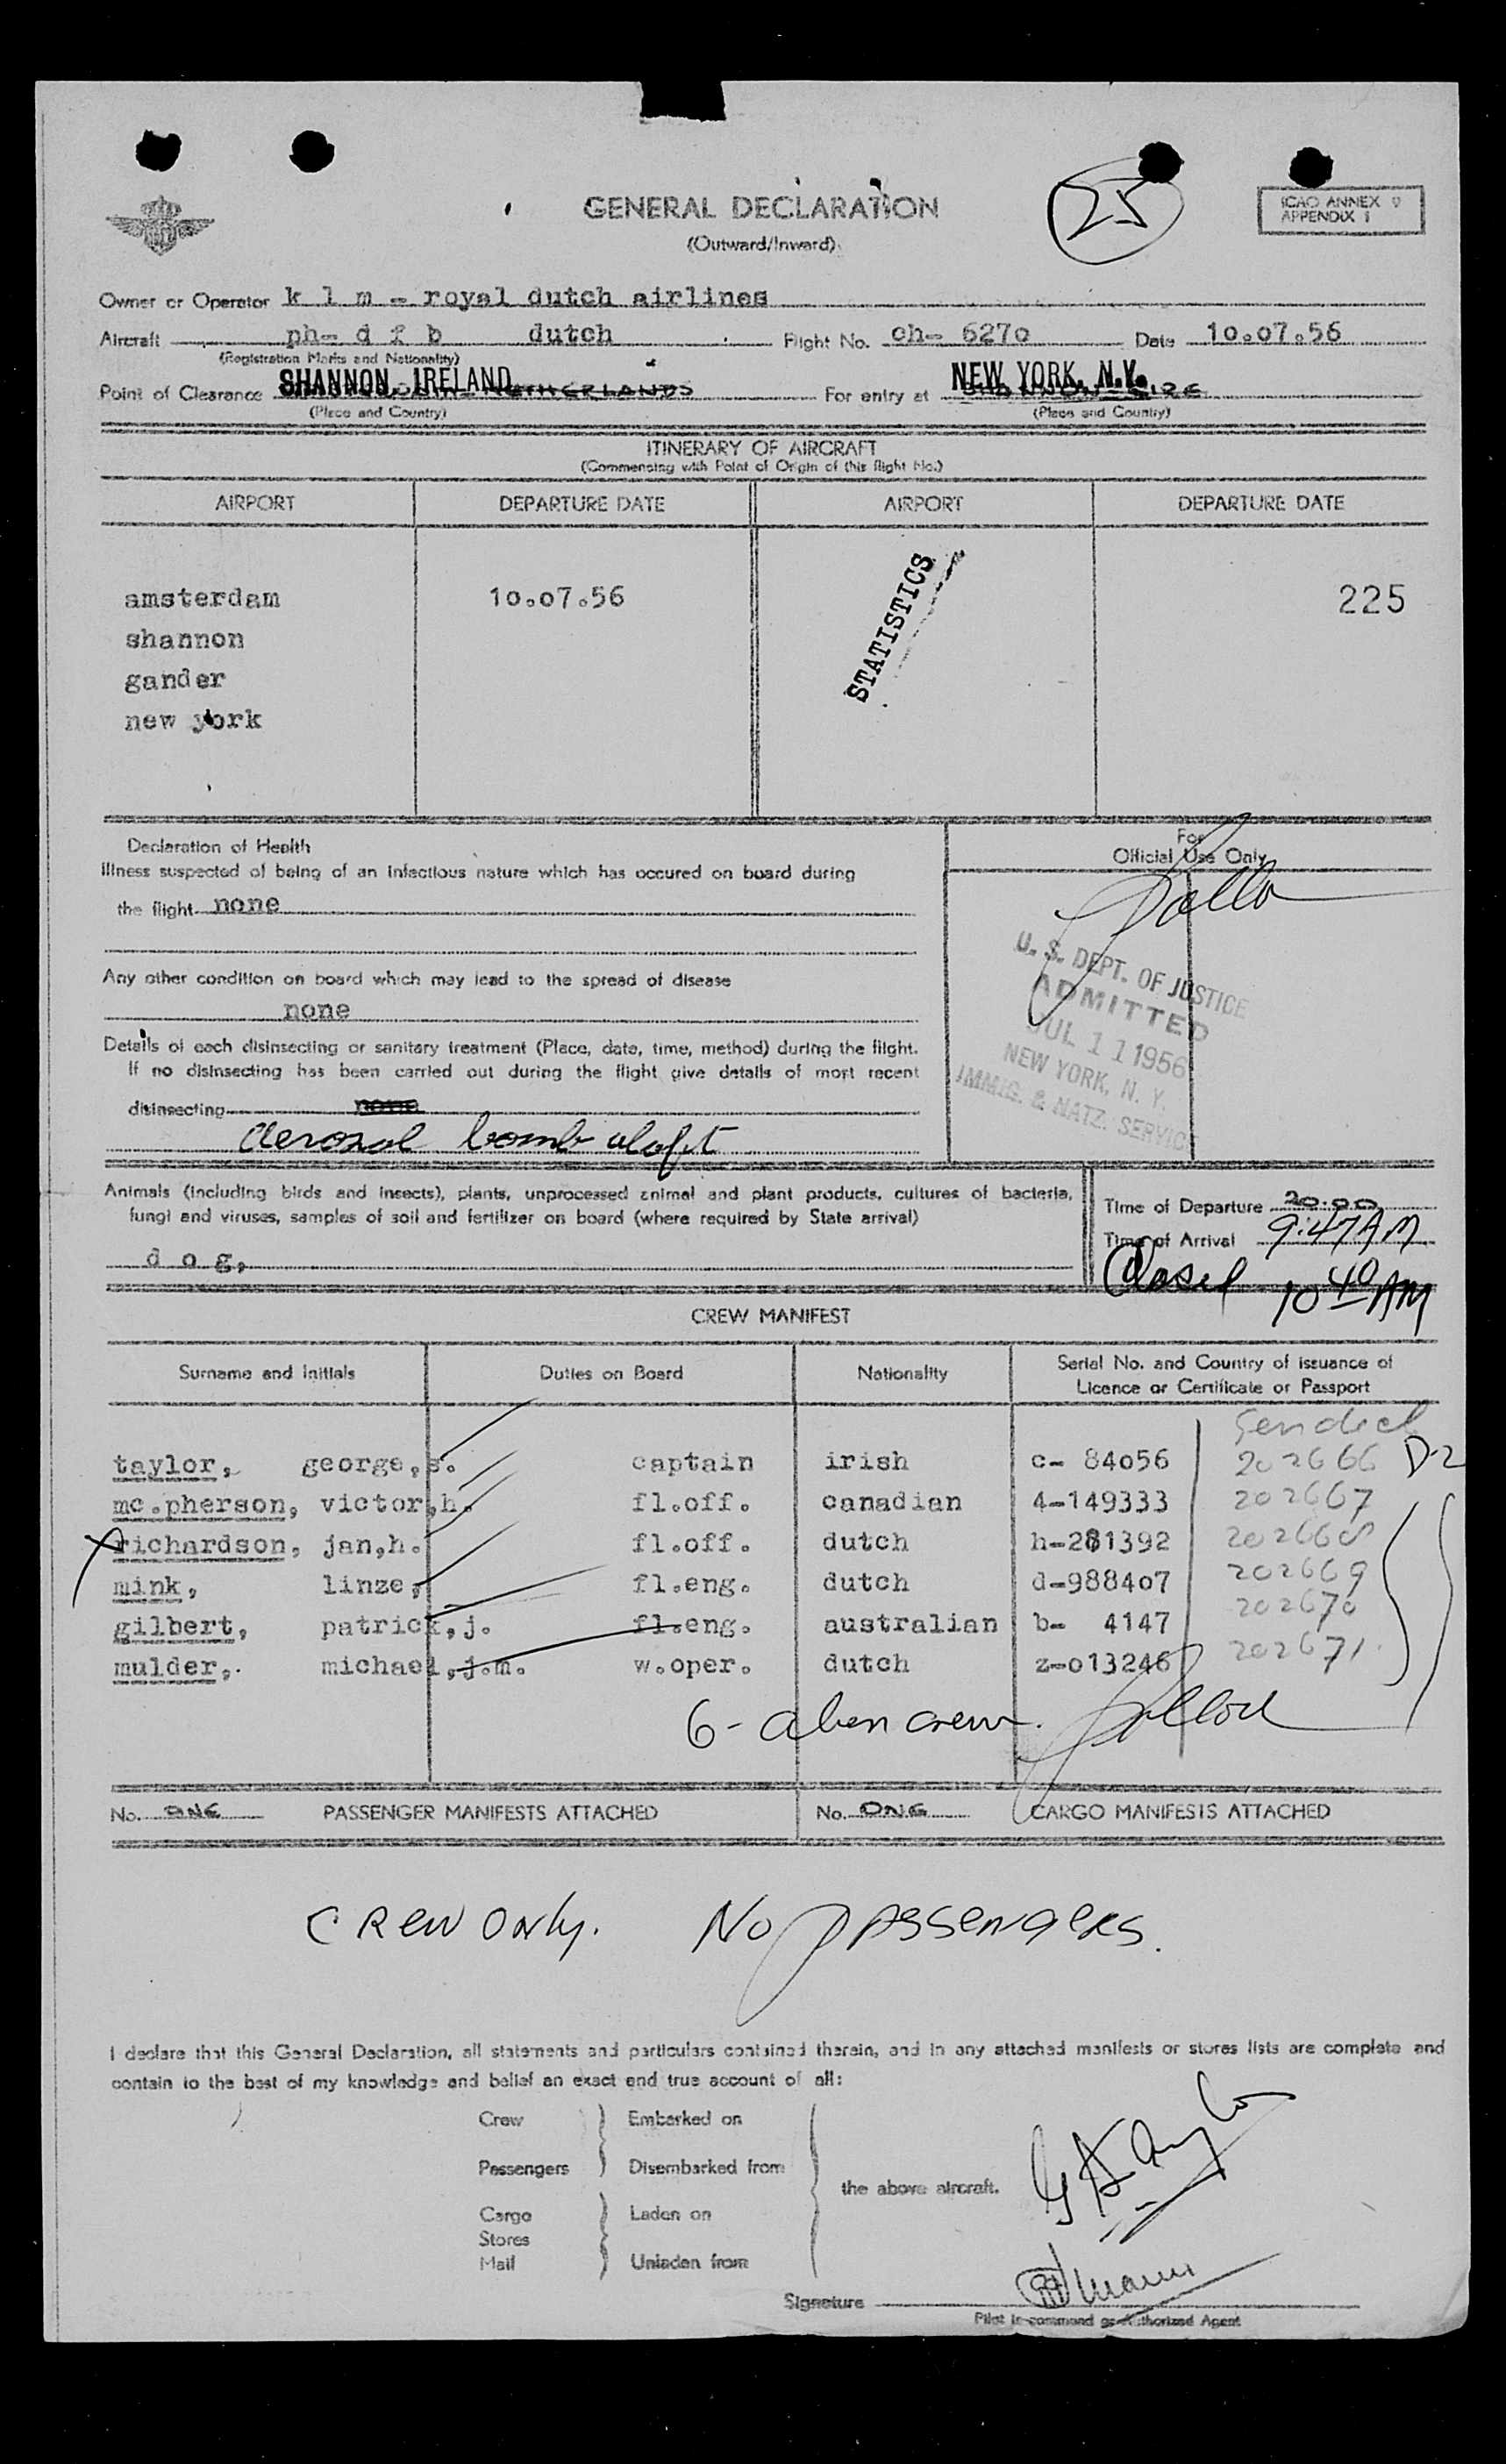 GENERAL DECLARATION
(Outward/Inward)
25
ICAO ANNEX 9
APPENDIX 1
Owner or Operator k l m - royal dutch airlines
Aircraft ph- d f b dutch Flight No. ch- 6270 Date 10.07.56
(Registration Marks and Nationality)
Point of Clearance SHANNON, IRELAND NETHERLANDS For entry at NEW YORK, N.Y. EIRE
(Place and Country) (Place and Country)
ITINERARY OF AIRCRAFT
(Commencing with Point of Origin of this flight No.)
AIRPORT DEPARTURE DATE AIRPORT DEPARTURE DATE
amsterdam 10.07.56 225
shannon
gander
new york
STATISTICS
Declaration of Health
Illness suspected of being of an infectious nature which has occured on board during
the flight none
Any other condition on board which may lead to the spread of disease
none
Details of each disinsecting or sanitary treatment (Place, date, time, method) during the flight.
If no disinsecting has been carried out during the flight give details of most recent
disinsecting none
aerosol bomb aloft
For
Official Use Only
U. S. DEPT. OF JUSTICE
ADMITTED
JUL 11 1956
NEW YORK, N. Y.
IMMIG. & NATZ. SERVICE
Animals (including birds and insects), plants, unprocessed animal and plant products, cultures of bacteria,
fungi and viruses, samples of soil and fertilizer on board (where required by State arrival)
d o g,
Time of Departure 20.00
Time of Arrival 9:47 AM
Closed 10 40 AM
CREW MANIFEST
Surname and Initials Duties on Board Nationality Serial No. and Country of issuance of
Licence or Certificate or Passport
taylor, george,s. captain irish c- 84056 202666 D-2
mc.pherson, victor,h. fl.off. canadian 4-149333 202667
richardson, jan,h. fl.off. dutch h-281392 202668
mink, linze, fl.eng. dutch d-988407 202669
gilbert, patrick,j. fl.eng. australian b- 4147 202670
mulder, michael,j.m. w.oper. dutch z-013246 202671
6 - alien crew.
No. ONE PASSENGER MANIFESTS ATTACHED No. ONE CARGO MANIFESTS ATTACHED
CREW ONLY. NO PASSENGERS.
I declare that this General Declaration, all statements and particulars contained therein, and in any attached manifests or stores lists are complete and
contain to the best of my knowledge and belief an exact and true account of all:
Crew Embarked on
Passengers Disembarked from
the above aircraft.
Cargo Laden on
Stores
Mail Unladen from
Signature
Pilot in command or Authorized Agent